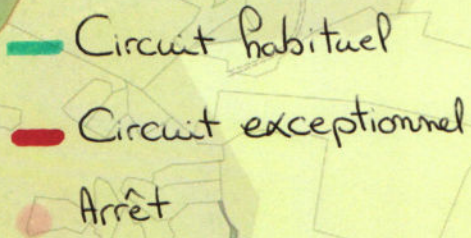 Circuit habituel
Circuit exceptionnel
Arrêt